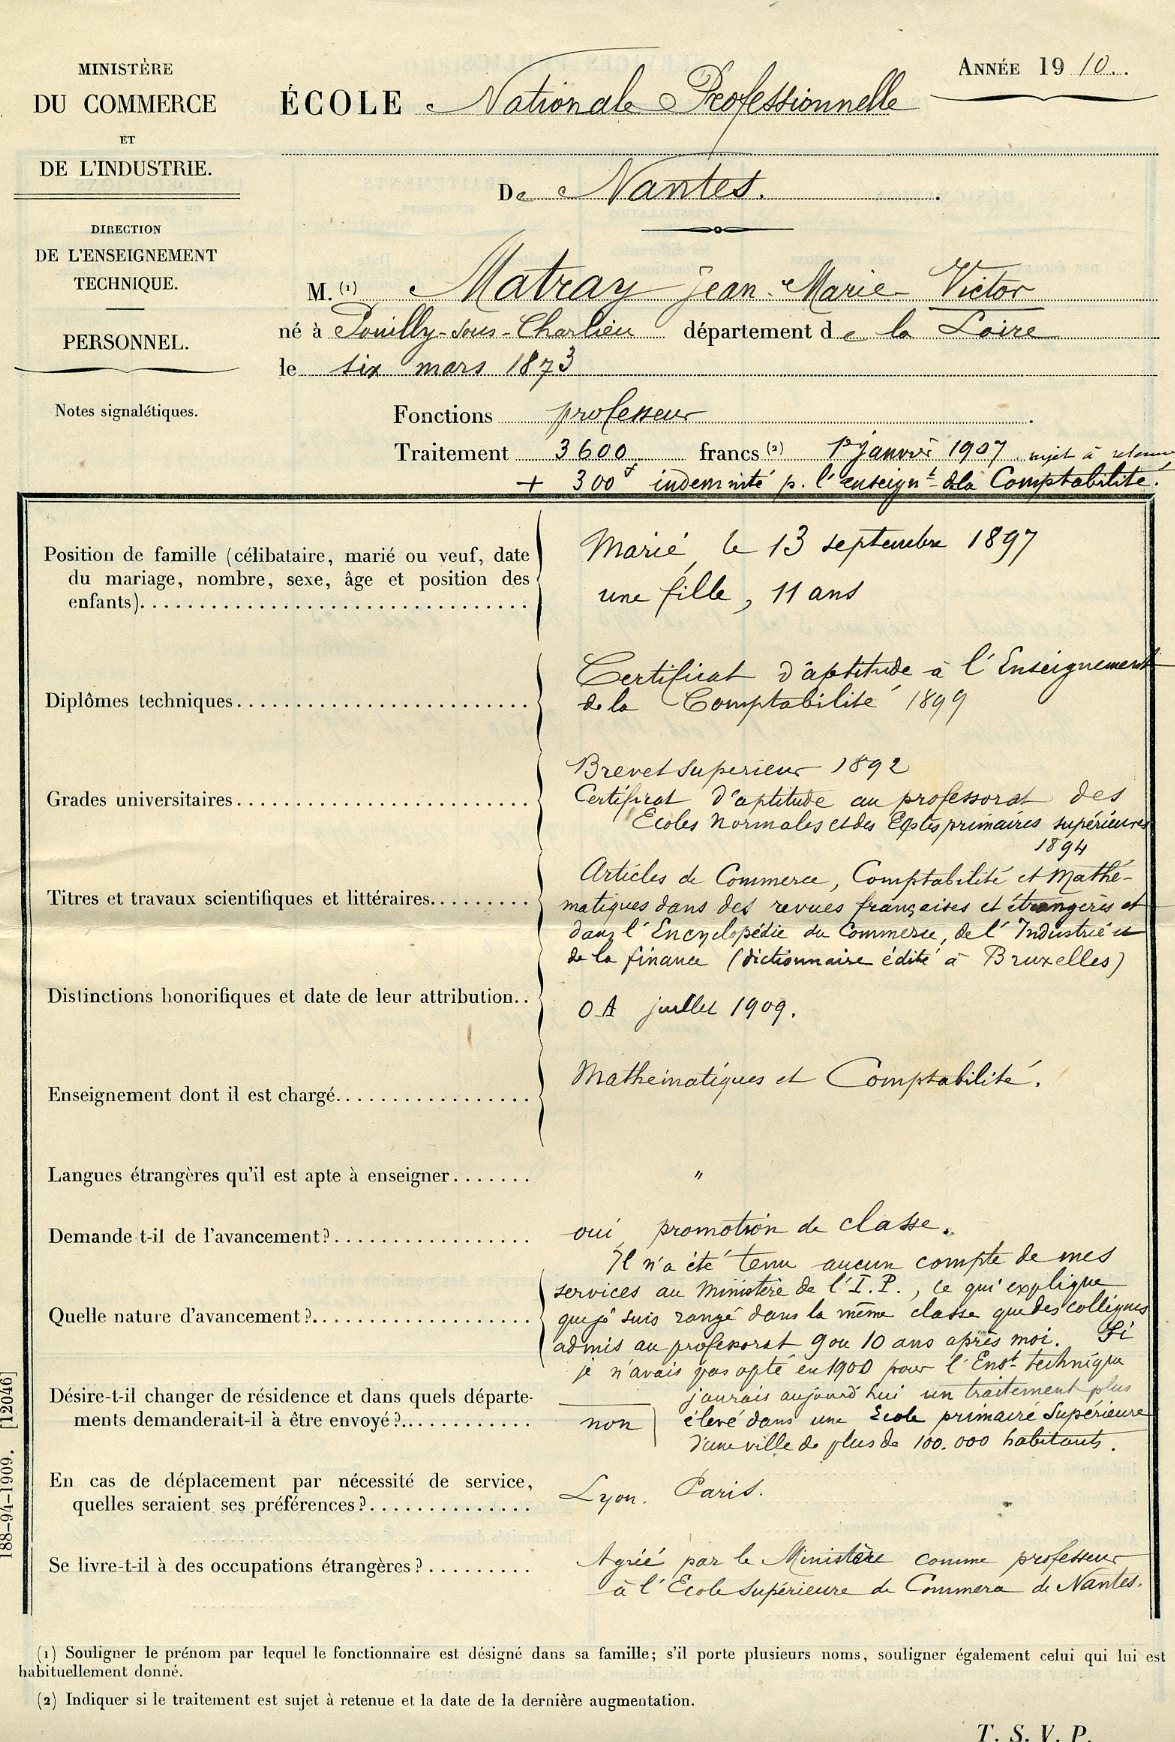 MINISTÈRE
DU COMMERCE
ET
DE L'INDUSTRIE.
DIRECTION
DE L'ENSEIGNEMENT
TECHNIQUE.
PERSONNEL.
Notes signalétiques.
ANNÉE 1910.
ÉCOLE Nationale Professionnelle
De Nantes.
M. (1) Matray Jean-Marie Victor
né à Pouilly-sous-Charlieu département de la Loire
le six mars 1873
Fonctions professeur
Traitement 3600 francs (2) 1er janvier 1907 sujet à retenue
+ 300f indemnité p. l'enseignt de la Comptabilité.
Position de famille (célibataire, marié ou veuf, date
du mariage, nombre, sexe, âge et position des
enfants)
Marié, le 13 septembre 1897
une fille, 11 ans
Diplômes techniques
Certificat d'aptitude à l'Enseignement
de la Comptabilité 1899
Grades universitaires
Brevet supérieur 1892
Certificat d'aptitude au professorat des
Ecoles Normales et des Ecoles primaires supérieures
1894
Titres et travaux scientifiques et littéraires
Articles de Commerce, Comptabilité et Mathé-
matiques dans des revues françaises et étrangères et
dans l'Encyclopédie du Commerce, de l'Industrie et
de la finance (dictionnaire édité à Bruxelles)
Distinctions honorifiques et date de leur attribution..
OA juillet 1909.
Enseignement dont il est chargé
Mathématiques et Comptabilité.
Langues étrangères qu'il est apte à enseigner
"
Demande t-il de l'avancement?
oui, promotion de classe.
Quelle nature d'avancement?
Il n'a été tenu aucun compte de mes
services au ministère de l'I.P., ce qui explique
que je suis rangé dans la même classe que des collègues
admis au professorat 9 ou 10 ans après moi. Si
je n'avais pas opté en 1900 pour l'Enst technique
j'aurais aujourd'hui un traitement plus
élevé dans une Ecole primaire Supérieure
d'une ville de plus de 100.000 habitants.
Désire-t-il changer de résidence et dans quels départe-
ments demanderait-il à être envoyé?
non
En cas de déplacement par nécessité de service,
quelles seraient ses préférences?
Lyon. Paris.
Se livre-t-il à des occupations étrangères?
Agréé par le Ministère comme professeur
à l'Ecole Supérieure de Commerce de Nantes.
188-94-1909. [12046]
(1) Souligner le prénom par lequel le fonctionnaire est désigné dans sa famille; s'il porte plusieurs noms, souligner également celui qui lui est
habituellement donné.
(2) Indiquer si le traitement est sujet à retenue et la date de la dernière augmentation.
T. S. V. P.